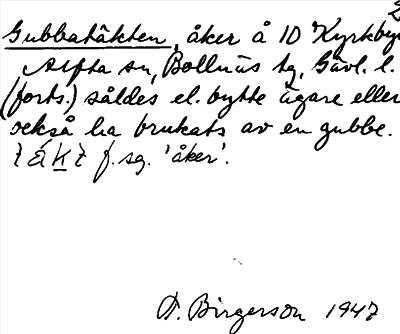 2
Gubbatäkten, åker å 1D Kyrkby
Alfta sn, Bollnäs tg, Gävl. l.
(forts.) såldes el. bytte ägare eller
också ha brukats av en gubbe.
f. sg. 'åker'.
Birgerson 1947